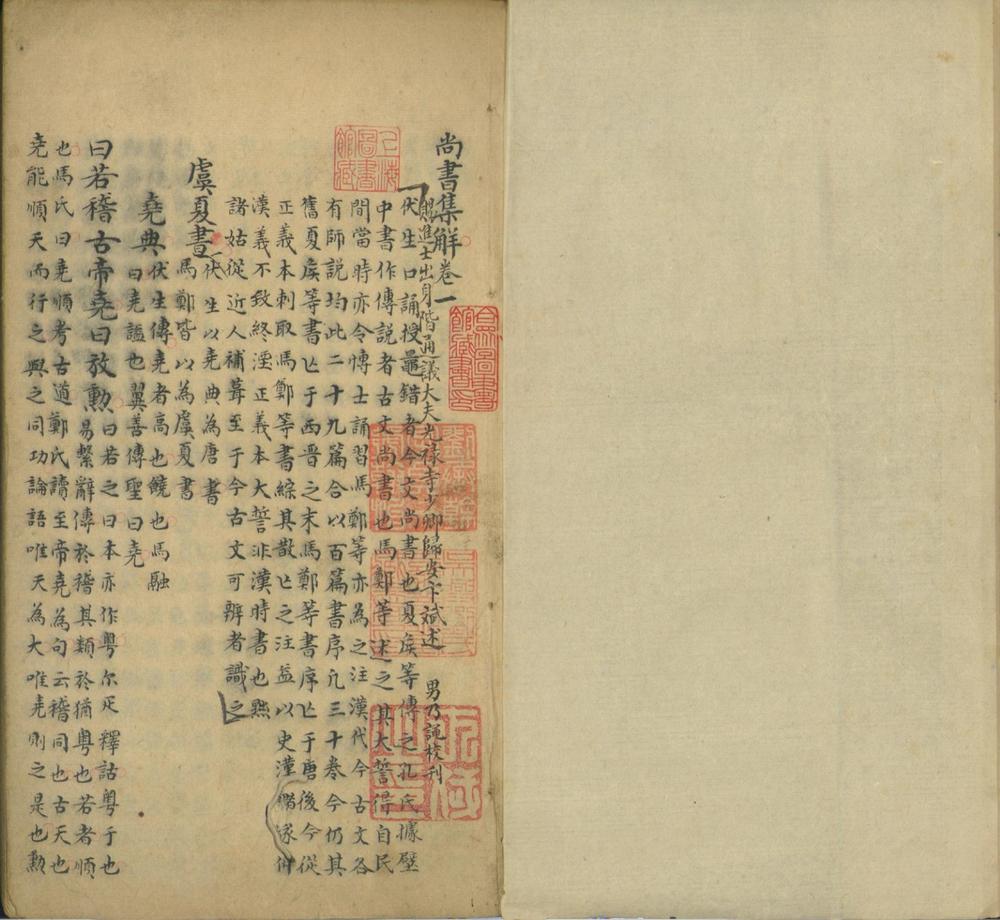 尚書集解卷一
賜進士出身階通議大夫光祿寺少卿歸安卞斌述　男乃譝校刊
伏生口誦授鼂錯者今文尚書也夏矦等傳之孔氏據壁
中書作傳說者古文尚書也馬鄭等述之其大誓得自民
間當時亦令博士誦習馬鄭等亦為之注漢代今古文各
有師說均此二十九篇合以百篇書序凡三十卷今仍其
舊夏矦等書亡于西晋之末馬鄭等書序亡于唐後今從
正義本刺取馬鄭等書綜其散亡之注益以史漢
漢義不致終淫正義本大誓非漢時書也
諸姑從近人補葺至于今古文可辨者識之
虞夏書
伏生以堯典為唐書
馬鄭皆以為虞夏書
堯典
伏生傳堯者高也饒也馬融
曰堯謚也翼善傳聖曰堯
曰若稽古帝堯曰放勲
曰若之曰本亦作粤尔疋釋詁粤于也
易繫辭傳於稽其類於猶粤也若者順
也馬氏曰堯順考古道鄭氏讀至帝堯為句云稽同也古天也
堯能順天而行之與之同功論語唯天為大唯堯則之是也勲
上海圖書館藏